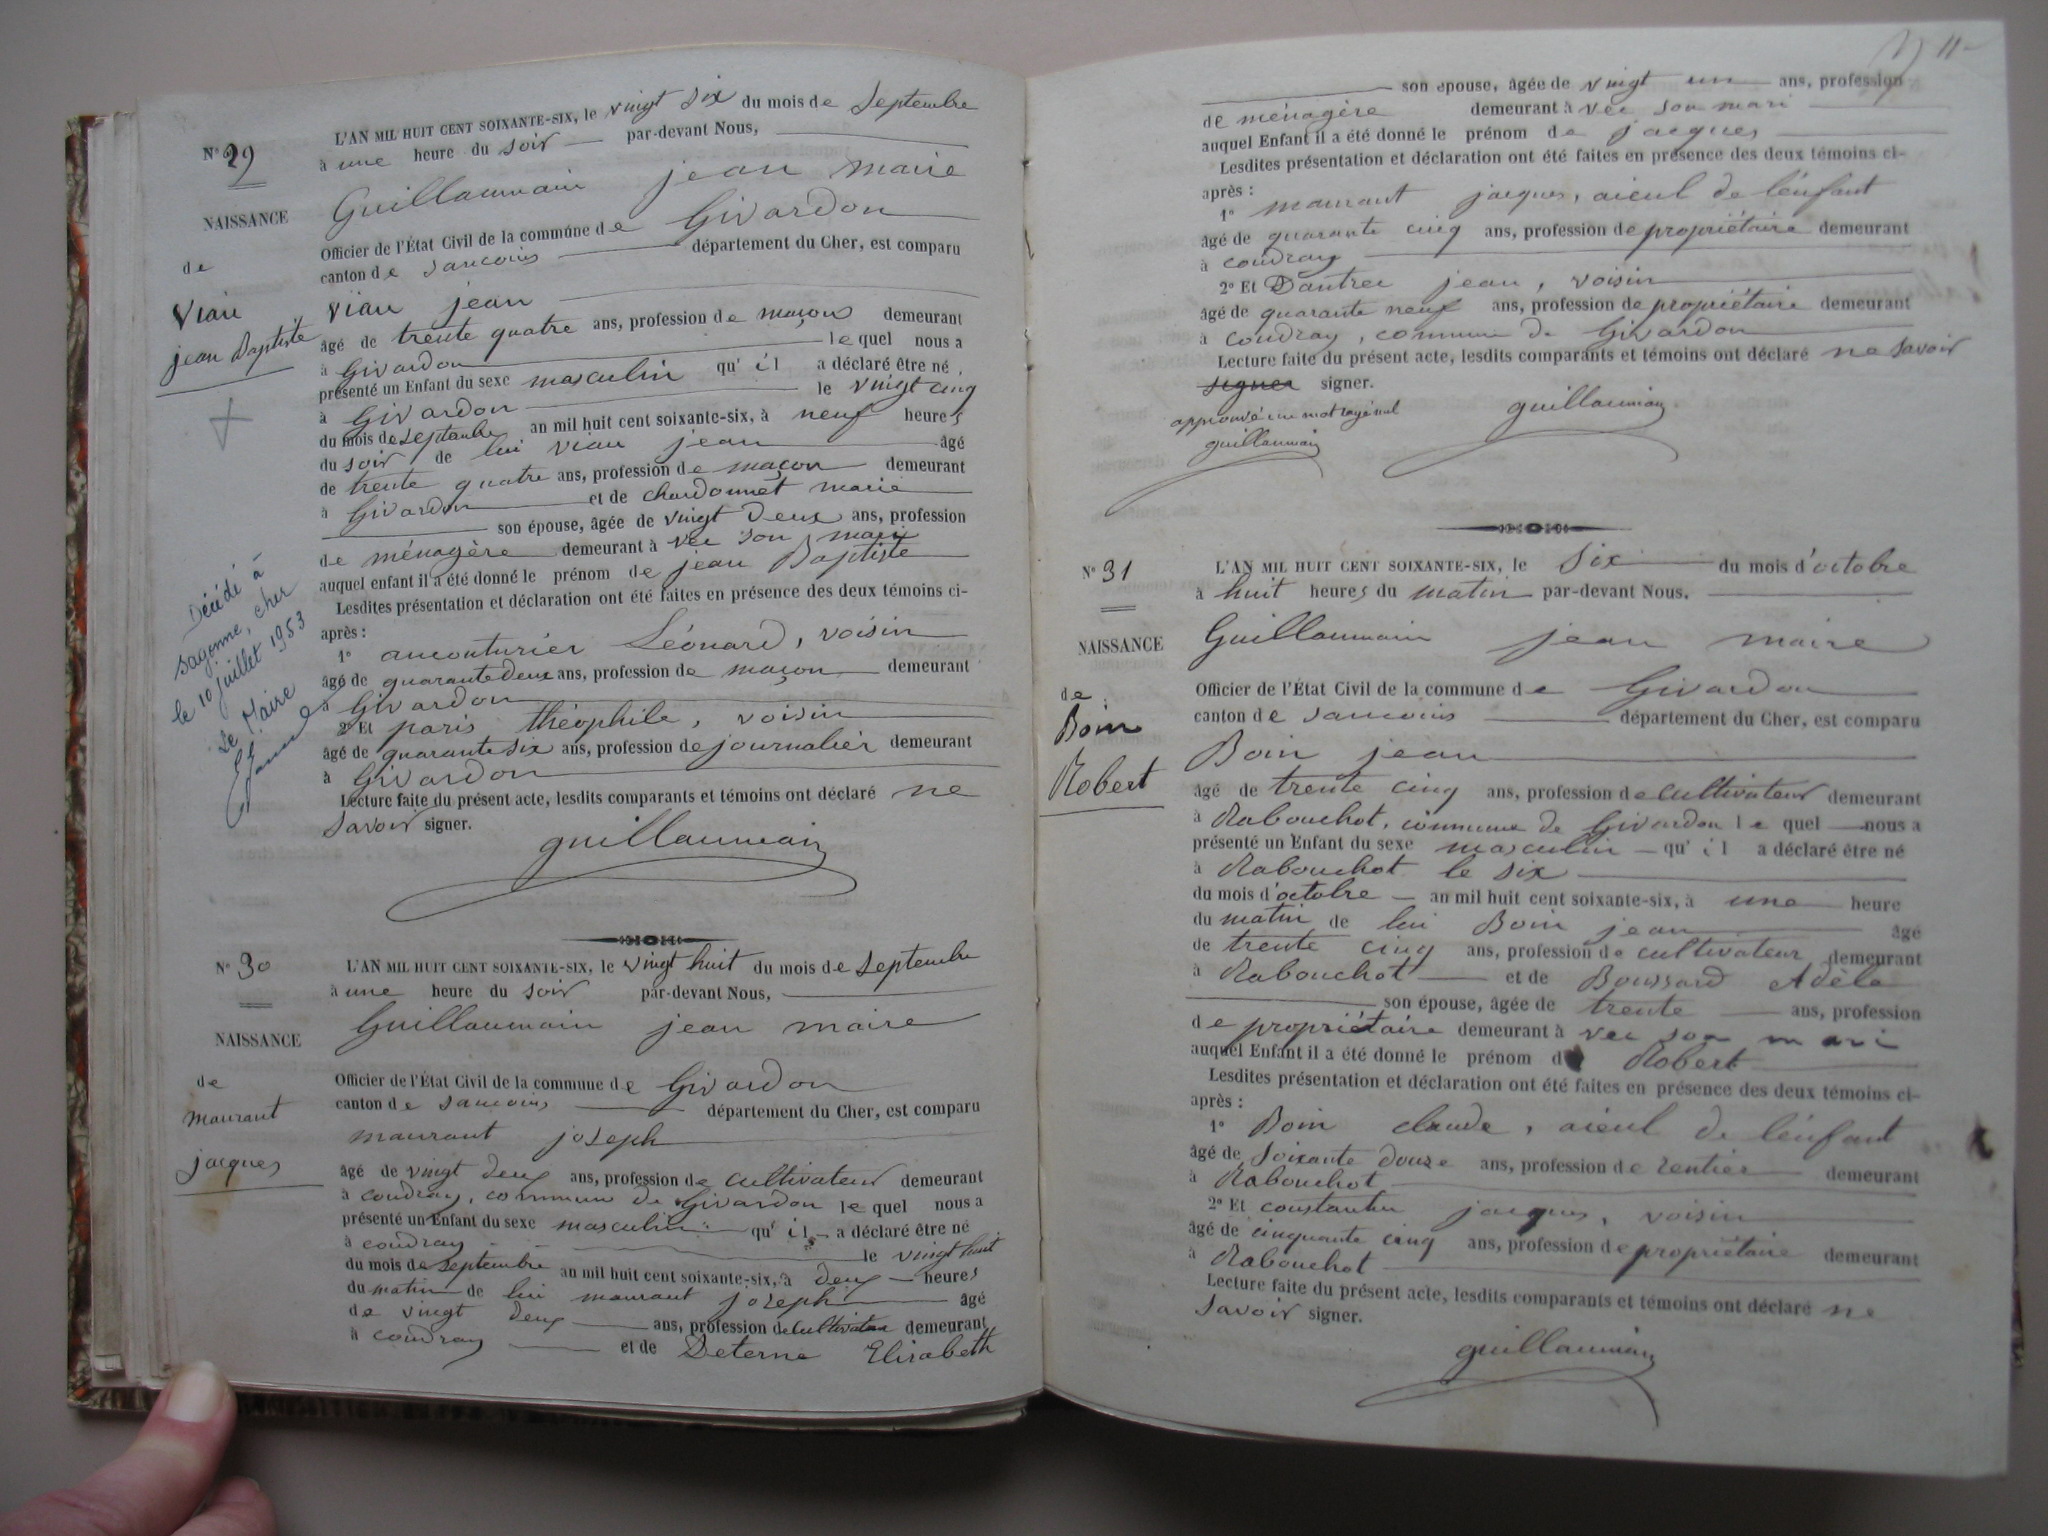 N° 29
NAISSANCE
de
Viau
jean Baptiste
Décédé à
Sagonne, cher
le 10 juillet 1953
Le Maire
L'AN MIL HUIT CENT SOIXANTE-SIX, le vingt six du mois de Septembre
à une heure du soir par-devant Nous,
Guillaumain jean maire
Officier de l'État Civil de la commune de Givardon
canton de sancoins département du Cher, est comparu
viau jean
âgé de trente quatre ans, profession de maçon demeurant
à Givardon lequel nous a
présenté un Enfant du sexe masculin qu'il a déclaré être né
à Givardon le vingt cinq
du mois de septembre an mil huit cent soixante-six, à neuf heures
du soir de lui viau jean âgé
de trente quatre ans, profession de maçon demeurant
à Givardon et de chardonnet marie
son épouse, âgée de vingt deux ans, profession
de ménagère demeurant à vec son mari
auquel enfant il a été donné le prénom de jean Baptiste
Lesdites présentation et déclaration ont été faites en présence des deux témoins ci-
après :
1° aucouturier Léonard, voisin
âgé de quarante deux ans, profession de maçon demeurant
à Givardon
2° Et paris théophile, voisin
âgé de quarante six ans, profession de journalier demeurant
à Givardon
Lecture faite du présent acte, lesdits comparants et témoins ont déclaré ne
savoir signer.
guillaumain
N° 30
NAISSANCE
de
maurant
jacques
L'AN MIL HUIT CENT SOIXANTE-SIX, le vingt huit du mois de septembre
à une heure du soir par-devant Nous,
Guillaumain jean maire
Officier de l'État Civil de la commune de Givardon
canton de sancoins département du Cher, est comparu
maurant joseph
âgé de vingt deux ans, profession de cultivateur demeurant
à coudray, commune de Givardon lequel nous a
présenté un Enfant du sexe masculin qu'il a déclaré être né
à coudray le vingt huit
du mois de septembre an mil huit cent soixante-six, à deux heures
du matin de lui maurant joseph âgé
de vingt deux ans, profession de cultivateur demeurant
à coudray et de Deterne Elisabeth
11
son épouse, âgée de vingt un ans, profession
de ménagère demeurant à vec son mari
auquel Enfant il a été donné le prénom de jacques
Lesdites présentation et déclaration ont été faites en présence des deux témoins ci-
après :
1° maurant jacques, aieul de l'enfant
âgé de quarante cinq ans, profession de propriétaire demeurant
à coudray
2° Et Dautrec jean, voisin
âgé de quarante neuf ans, profession de propriétaire demeurant
à coudray, commune de Givardon
Lecture faite du présent acte, lesdits comparants et témoins ont déclaré ne savoir
signer signer.
approuvé un mot rayé nul
guillaumain
guillaumain
N° 31
NAISSANCE
de
Boin
Robert
L'AN MIL HUIT CENT SOIXANTE-SIX, le six du mois d'octobre
à huit heures du matin par-devant Nous,
Guillaumain jean maire
Officier de l'État Civil de la commune de Givardon
canton de sancoins département du Cher, est comparu
Boin jean
âgé de trente cinq ans, profession de cultivateur demeurant
à Rabouchot, commune de Givardon lequel nous a
présenté un Enfant du sexe masculin qu'il a déclaré être né
à Rabouchot le six
du mois d'octobre an mil huit cent soixante-six, à une heure
du matin de lui Boin jean âgé
de trente cinq ans, profession de cultivateur demeurant
à Rabouchot et de Boussard Adèle
son épouse, âgée de trente ans, profession
de propriétaire demeurant à vec son mari
auquel Enfant il a été donné le prénom de Robert
Lesdites présentation et déclaration ont été faites en présence des deux témoins ci-
après :
1° Boin claude, aieul de l'enfant
âgé de soixante douze ans, profession de rentier demeurant
à Rabouchot
2° Et constantin jacques, voisin
âgé de cinquante cinq ans, profession de propriétaire demeurant
à Rabouchot
Lecture faite du présent acte, lesdits comparants et témoins ont déclaré ne
savoir signer.
guillaumain